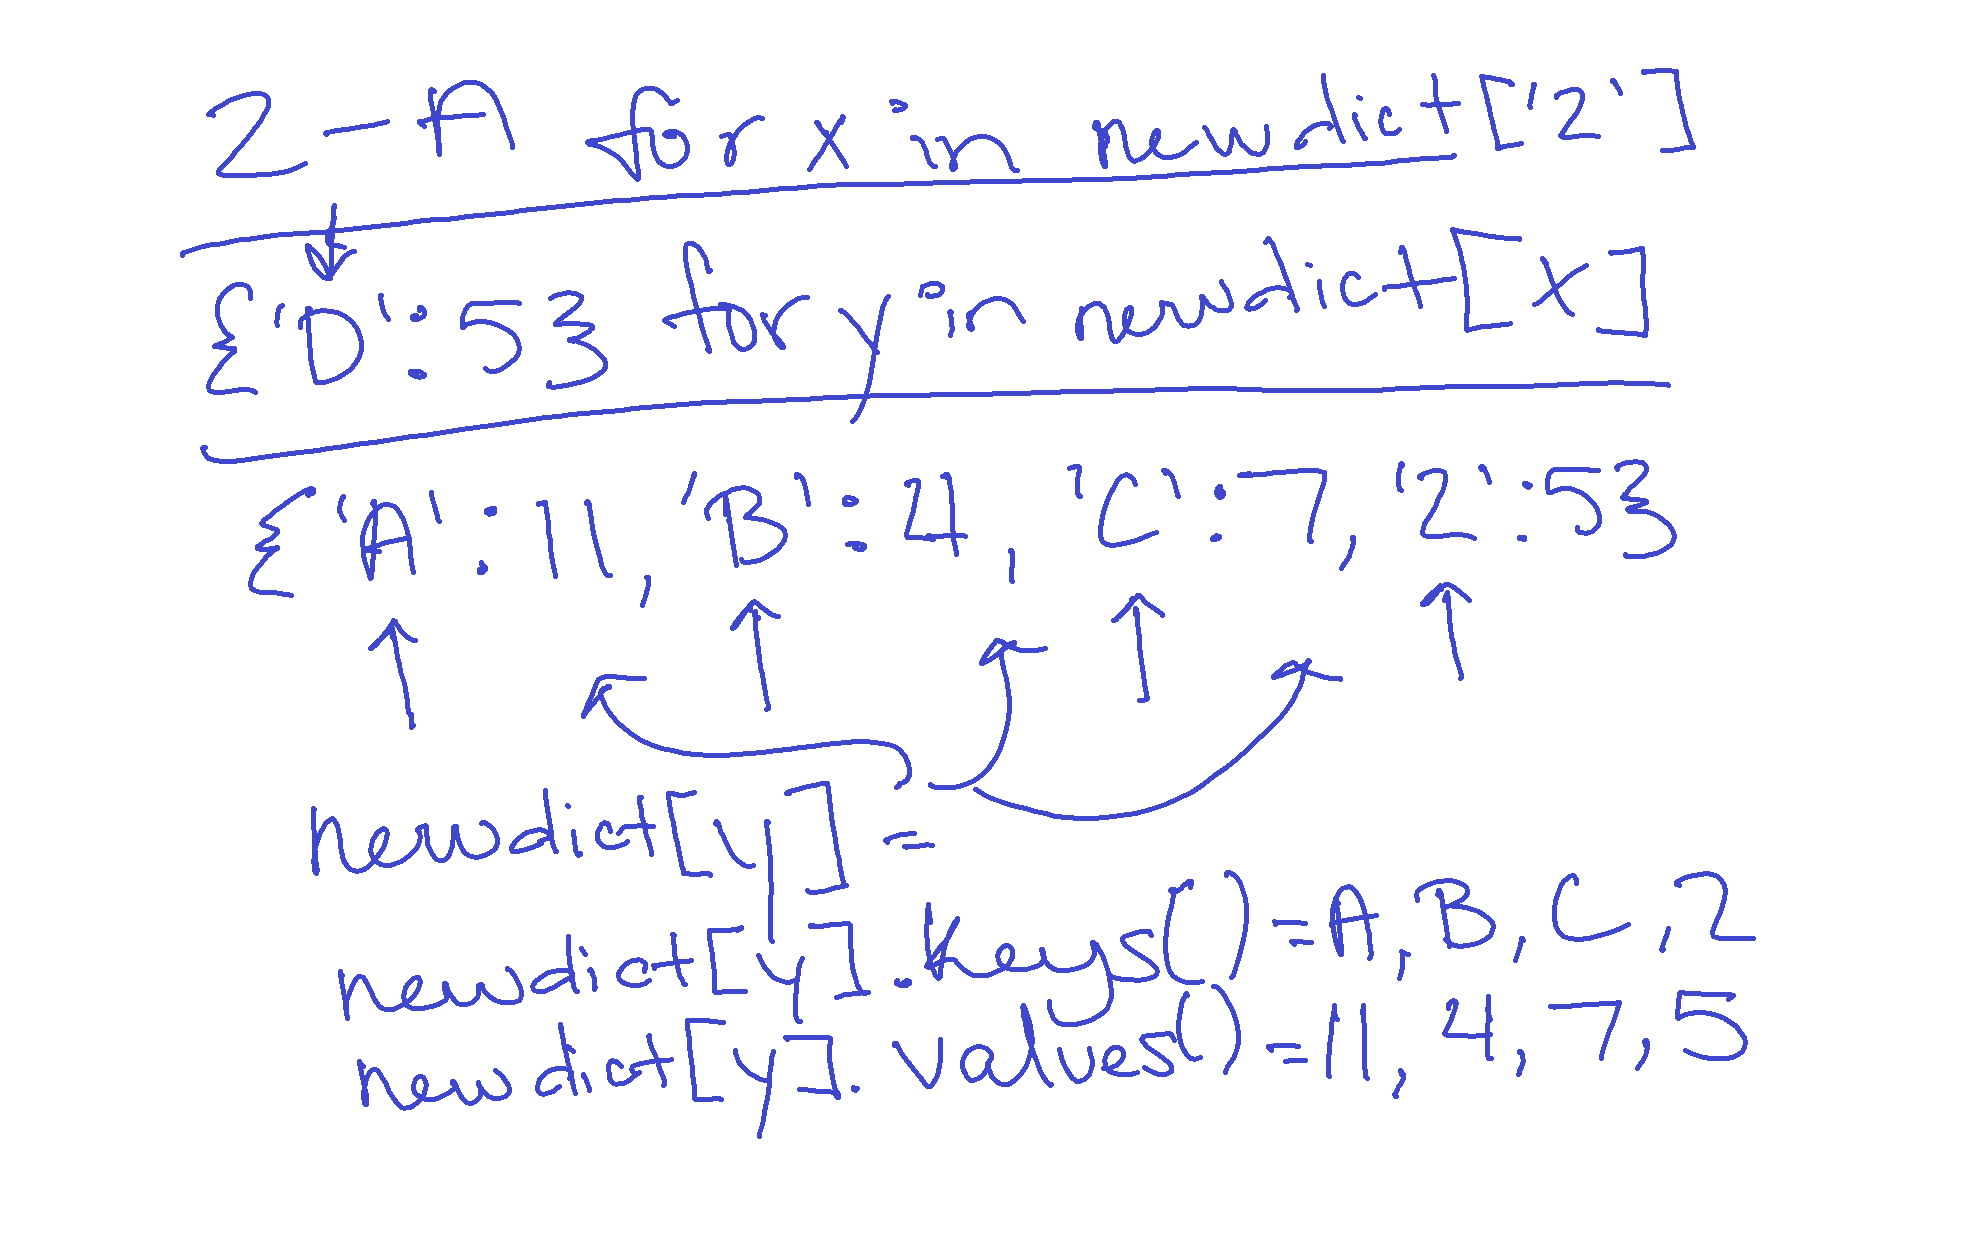 2 - A for x in newdict['2']
{'D':5} for y in newdict[x]
{'A':11, 'B':4, 'C':7, '2':5}
newdict[y] =
newdict[y].keys() = A, B, C, 2
newdict[y].values() = 11, 4, 7, 5